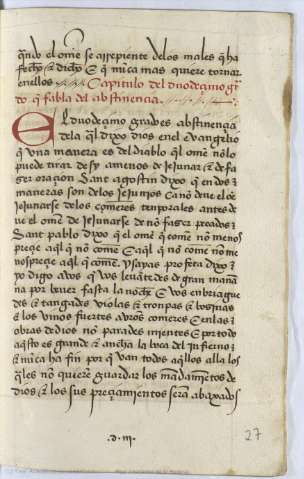 qu̅do el om̅e se arrepiente delos males q̅ ha
fecho & dicho E q̅ nu̅ca mas quiere tornar
enellos Capitulo del duodecimo gr̅
do q̅ fabla del abstinencia.
EL duodecimo grado es abstinençia
dela q̅l dixo dios enel euangelio
q̅ vna manera es del diablo q̅l om̅e no̅lo
puede tirar de sy amenos de ieiunar & de fa
ser oraçion Sant agostin dixo q̅ en dos
maneras son delos ieiunios Ca no̅ deue el o̅e
ieiunar se delos comeres temporales antes de
ue el om̅e de ieiunarse de no̅ faser pecados
Sant pablo dixo q̅ el om̅e q̅ come no̅ menos
preçie aql̅ q̅ no̅ come E aql̅ q̅ no̅ come no̅ me
nospreçie aql̅ q̅ come ysayas profeta dixo
yo digo a vos q̅ vos leua̅tades de gran man̅a
na por beuer fasta la noche E vos enbriague
des & tangades violas & tronpas & bosinas
& los vinos fuertes auro̅ comeres E enlas
obras de dios no̅ parades mientes E por todo
aq̅sto es grande & ancha la boca del infierno
& nu̅ca ha fin por q̅ van todos aq̅llos alla los
q̅les no̅ quiere̅ guardar los ma̅damie̅tos de
dios & los sus preçiamientos sera̅ abaxados
.d. iij.
27